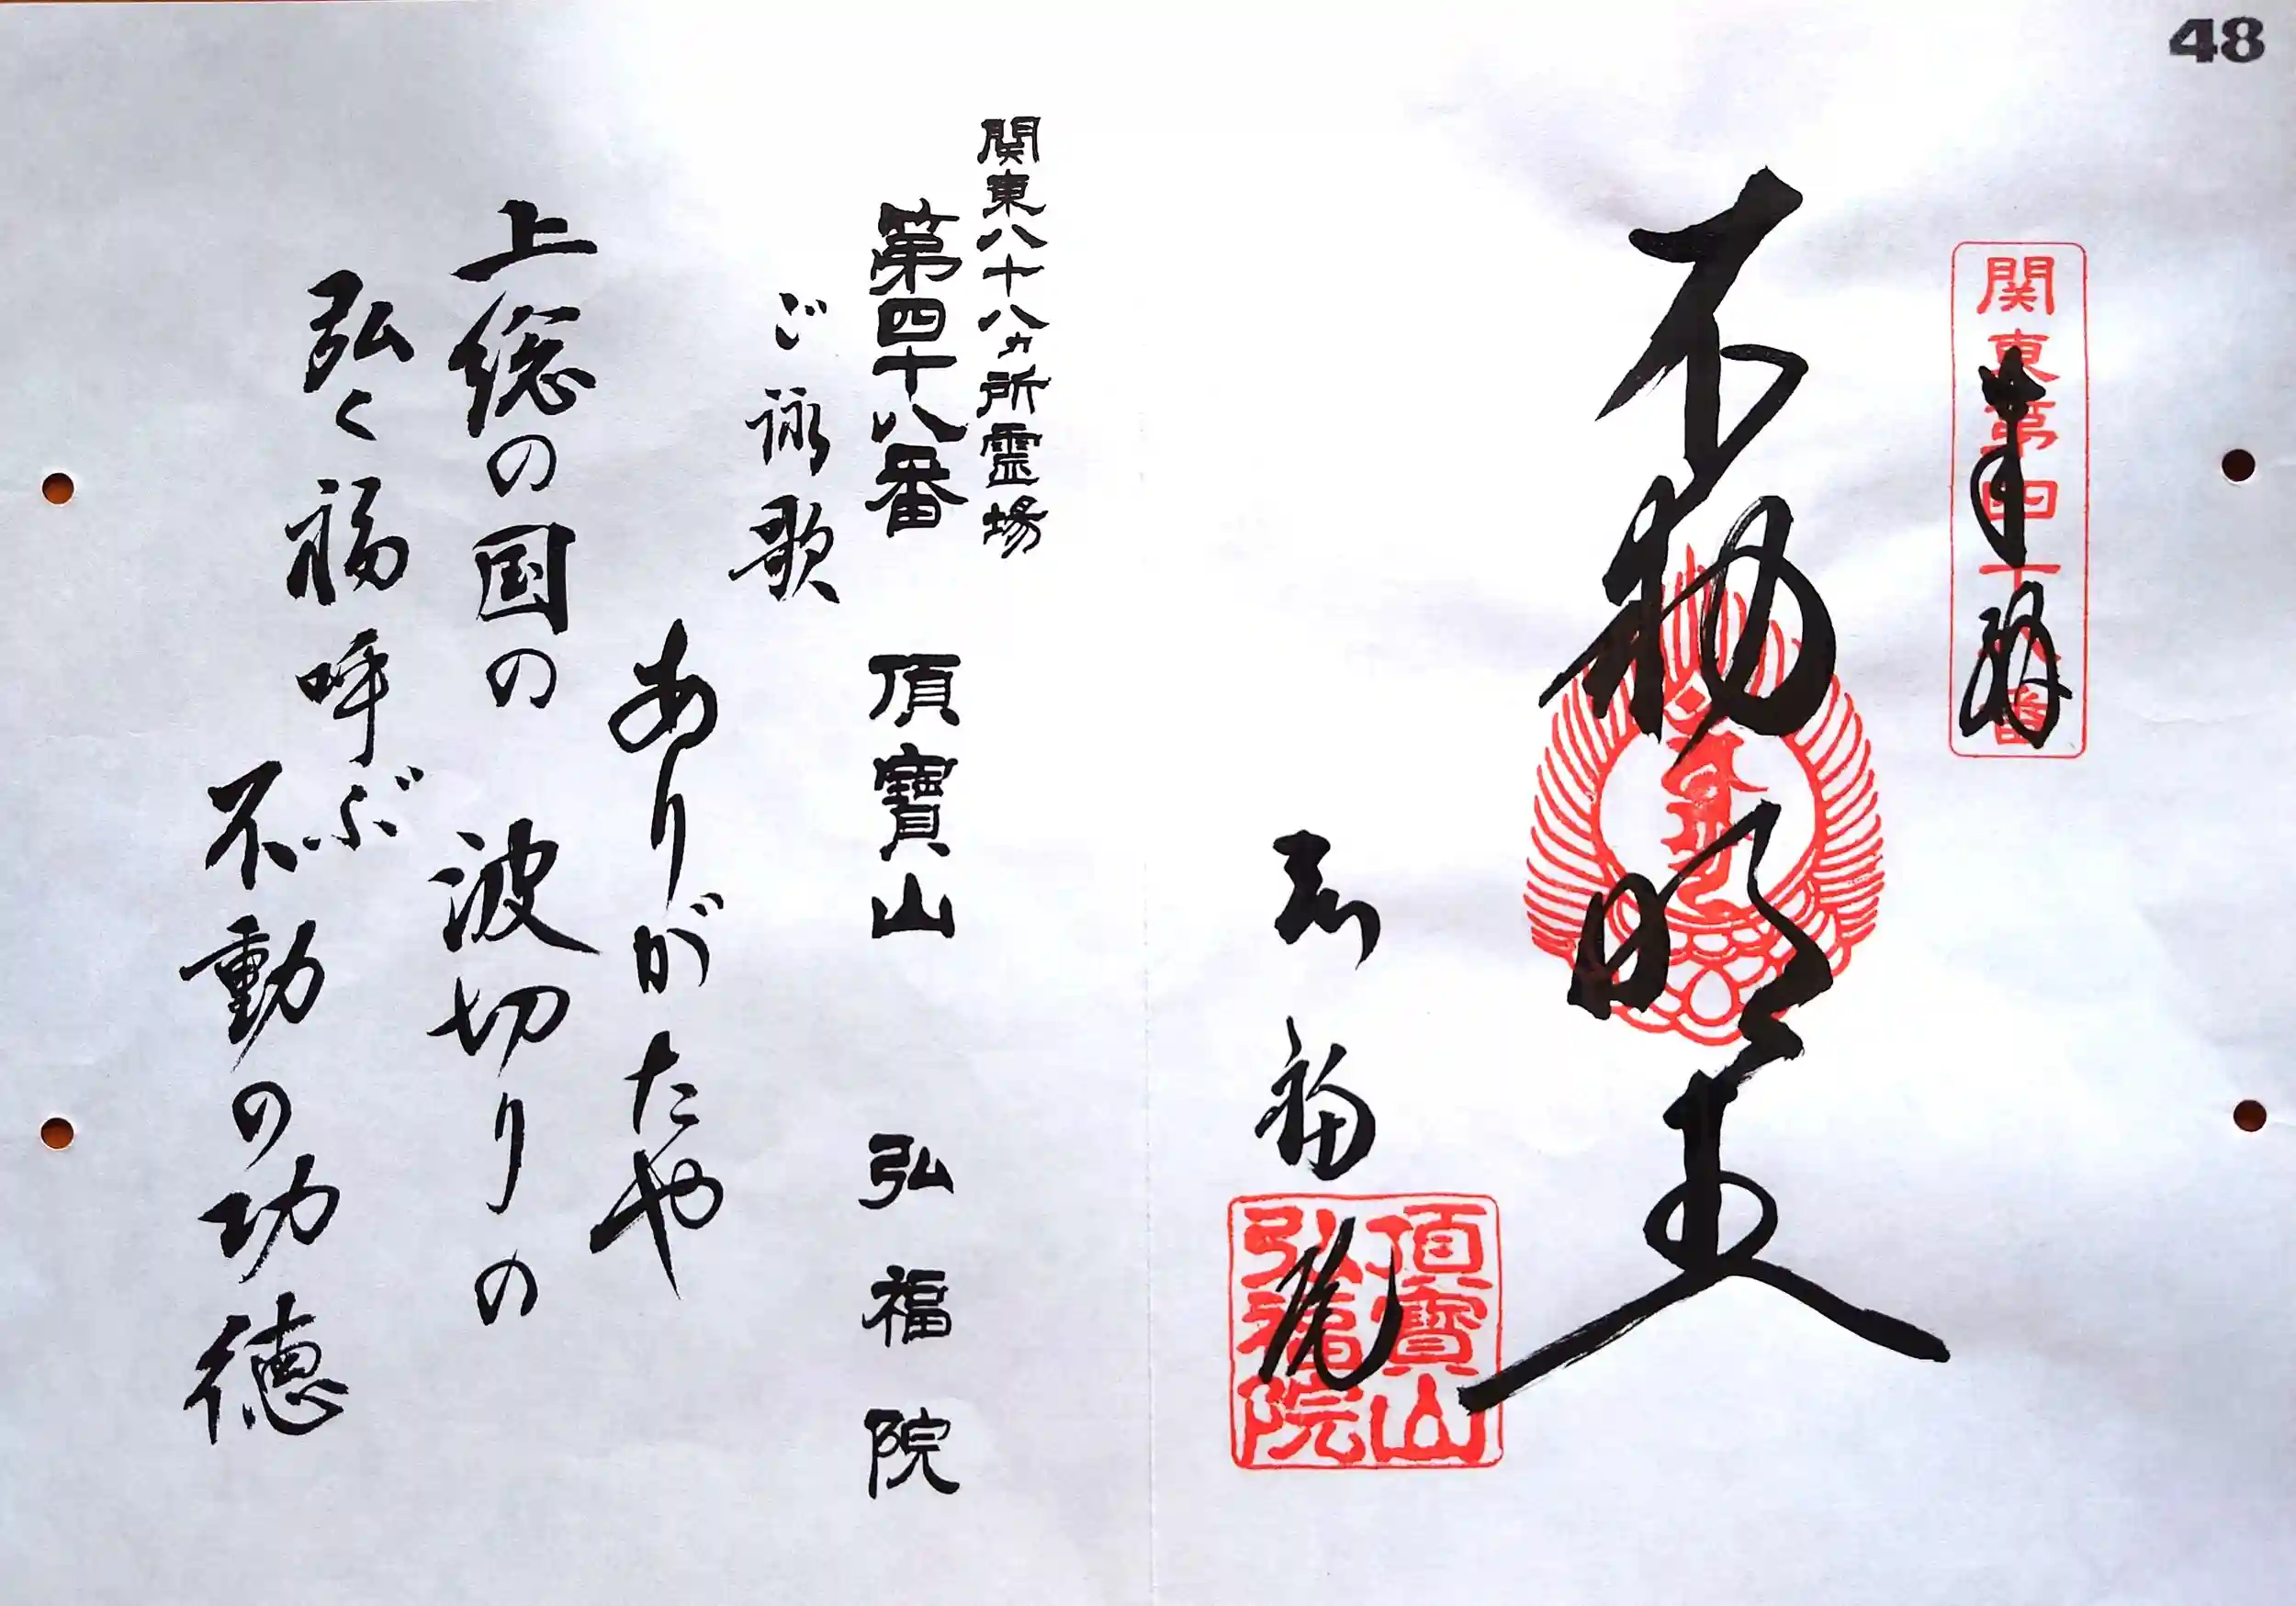 48
奉拝
関東第四十八番
不動明王
弘福院
頂寳山
弘福院
関東八十八ヵ所霊場
第四十八番 頂寳山 弘福院
ご詠歌
ありがたや
上総の国の 波切りの
弘く福呼ぶ
不動の功徳